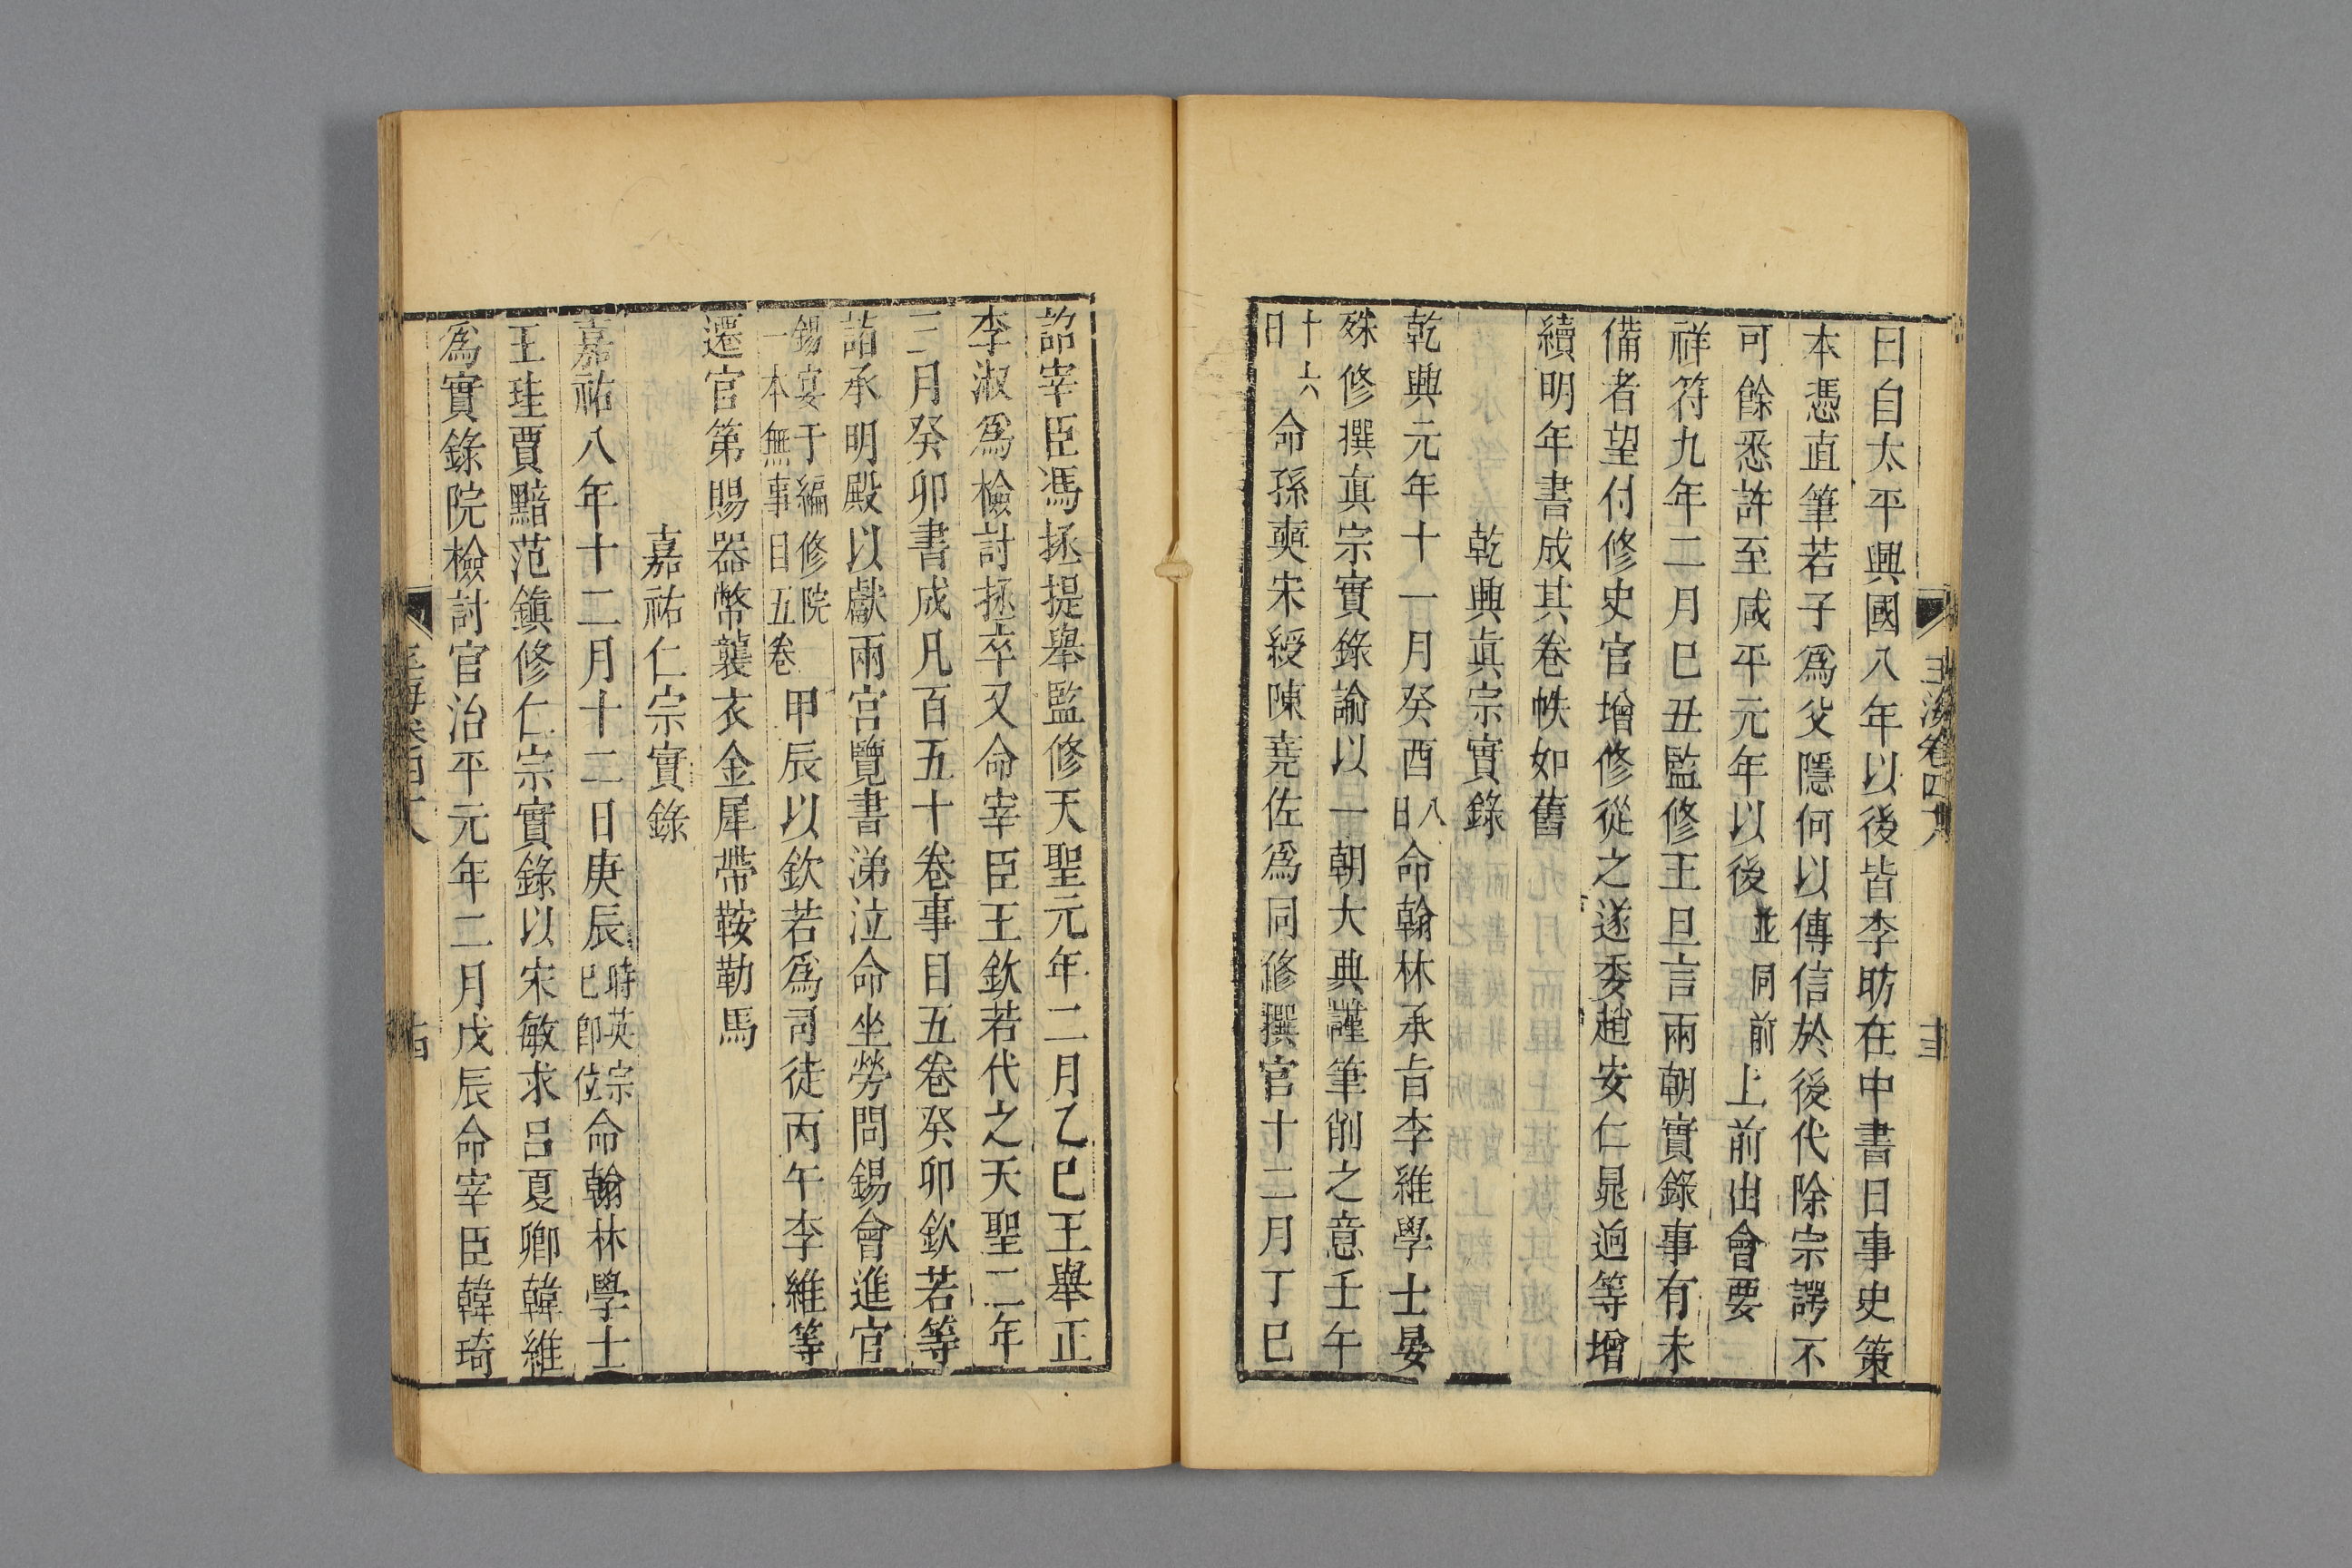 曰自太平興國八年以後皆李昉在中書日事史策
本憑直筆若子爲父隱何以傳信於後代除宗諤不
可餘悉許至咸平元年以後並同前上前出會要
祥符九年二月巳丑監修王旦言兩朝實錄事有未
備者望付修史官增修從之遂委趙安仁晁逈等增
續明年書成其卷帙如舊
乾興眞宗實錄
乾興元年十一月癸酉八日命翰林承旨李維學士晏
殊修撰眞宗實錄諭以一朝大典謹筆削之意壬午
十六日命孫奭宋綬陳堯佐爲同修撰官十二月丁巳
詔宰臣馮拯提舉監修天聖元年二月乙巳王舉正
李淑爲檢討拯卒又命宰臣王欽若代之天聖二年
三月癸卯書成凡百五十卷事目五卷癸卯欽若等
詣承明殿以獻兩宮覽書涕泣命坐勞問錫會進官
錫宴于編修院一本無事目五卷甲辰以欽若爲司徒丙午李維等
遷官第賜器幣襲衣金犀帶鞍勒馬
嘉祐仁宗實錄
嘉祐八年十二月十二日庚辰時英宗巳卽位命翰林學士
王珪賈黯范鎭修仁宗實錄以宋敏求呂夏卿韓維
爲實錄院檢討官治平元年二月戊辰命宰臣韓琦